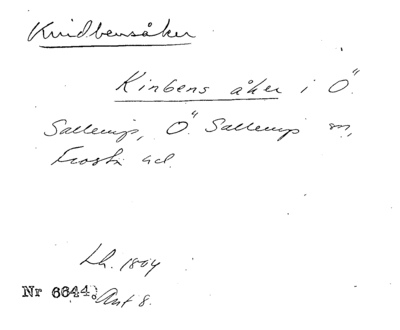 Knidbensåker
Kinbens åker i Ö.
Sallerup, Ö. Sallerup sn,
Frosta hd.
Lh. 1804
Nr 6644. Ant 8.